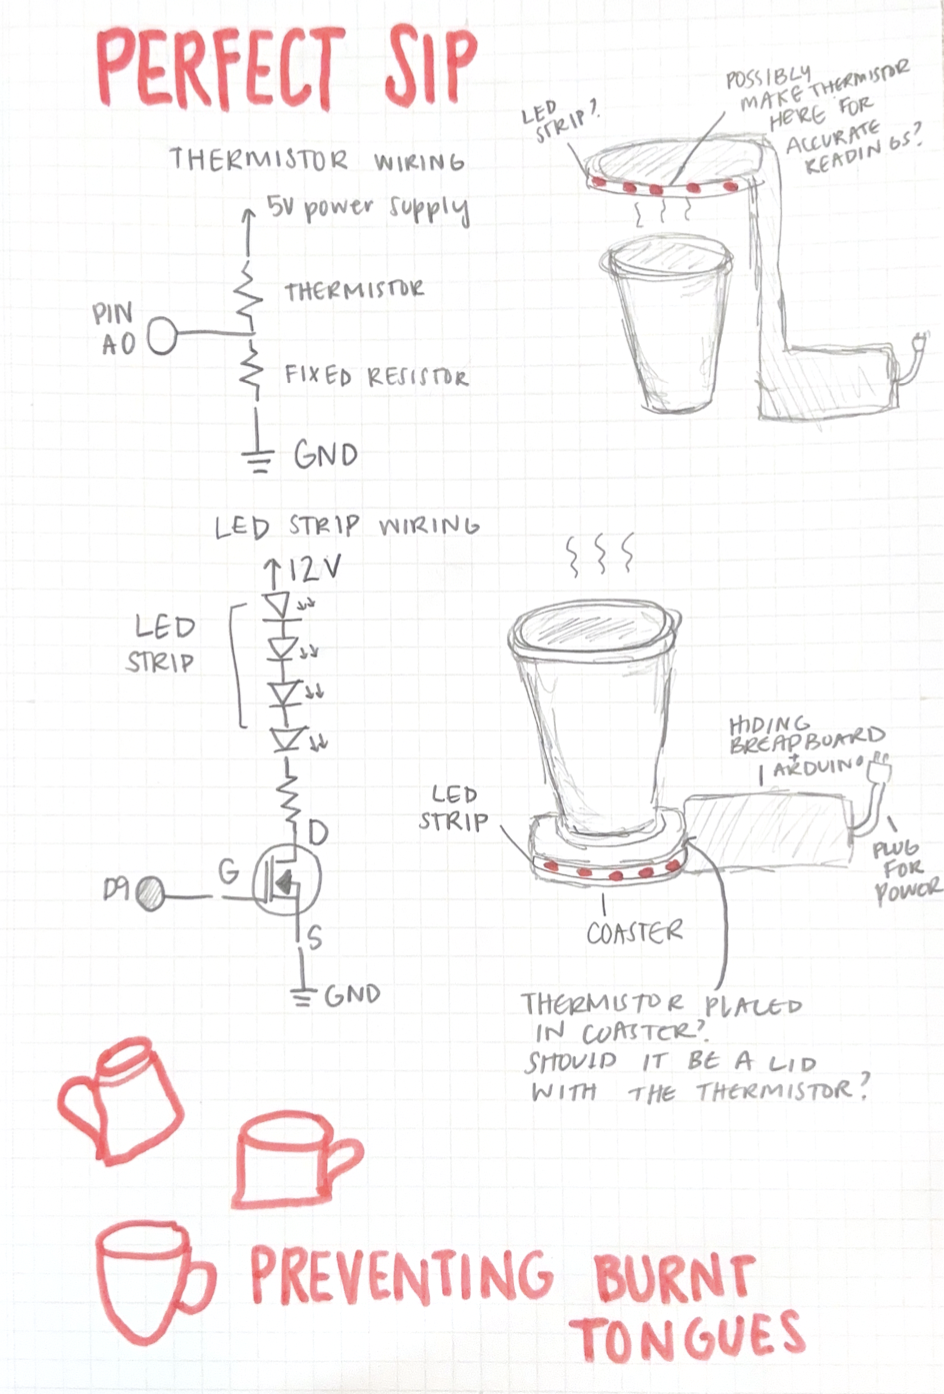 PERFECT SIP
THERMISTOR WIRING
5V power supply
THERMISTOR
PIN
A0
FIXED RESISTOR
GND
LED
STRIP?
POSSIBLY
MAKE THERMISTOR
HERE FOR
ACCURATE
READINGS?
LED STRIP WIRING
12V
LED
STRIP
D
G
D9
S
GND
HIDING
BREADBOARD
+
ARDUINO
LED
STRIP
PLUG
FOR
POWER
COASTER
THERMISTOR PLACED
IN COASTER?
SHOULD IT BE A LID
WITH THE THERMISTOR?
PREVENTING BURNT
TONGUES